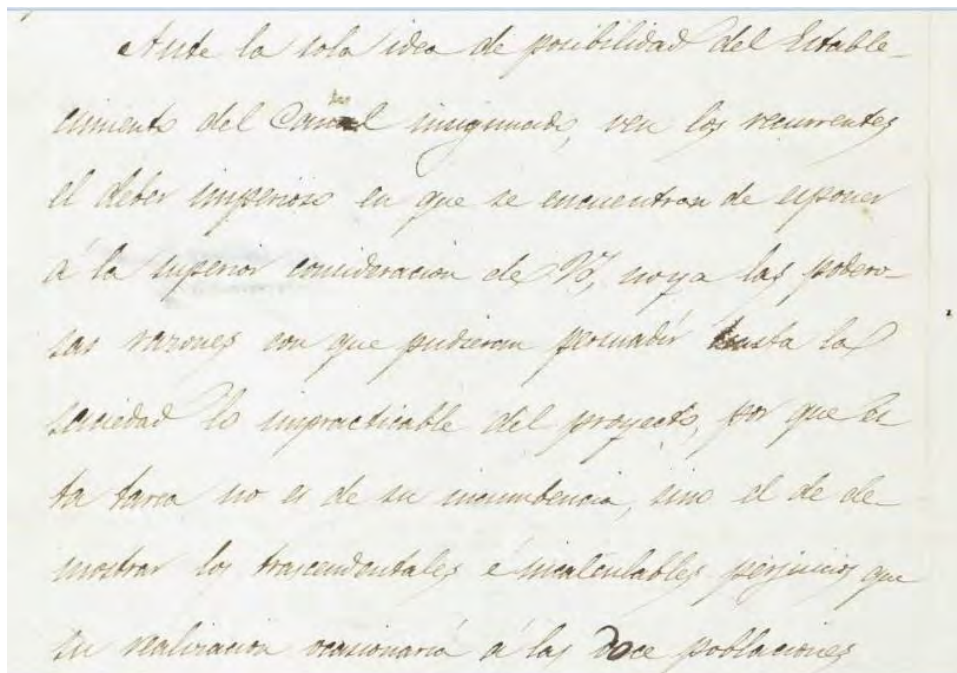 Ante la sola idea de posibilidad del Estable-
cimiento del Canal insignuado, ven los recurrentes
el deber imperioso en que se encuentran de esponer
á la superior consideracion de V.S., no ya las podero-
sas razones con que pudieran persuadir hasta la
saciedad lo impracticable del proyecto, por que es-
ta tarea no es de su incumbencia, sino el de de-
mostrar los trascendentales é incalculables perjuicios que
su realizacion ocasionaria á las doce poblaciones